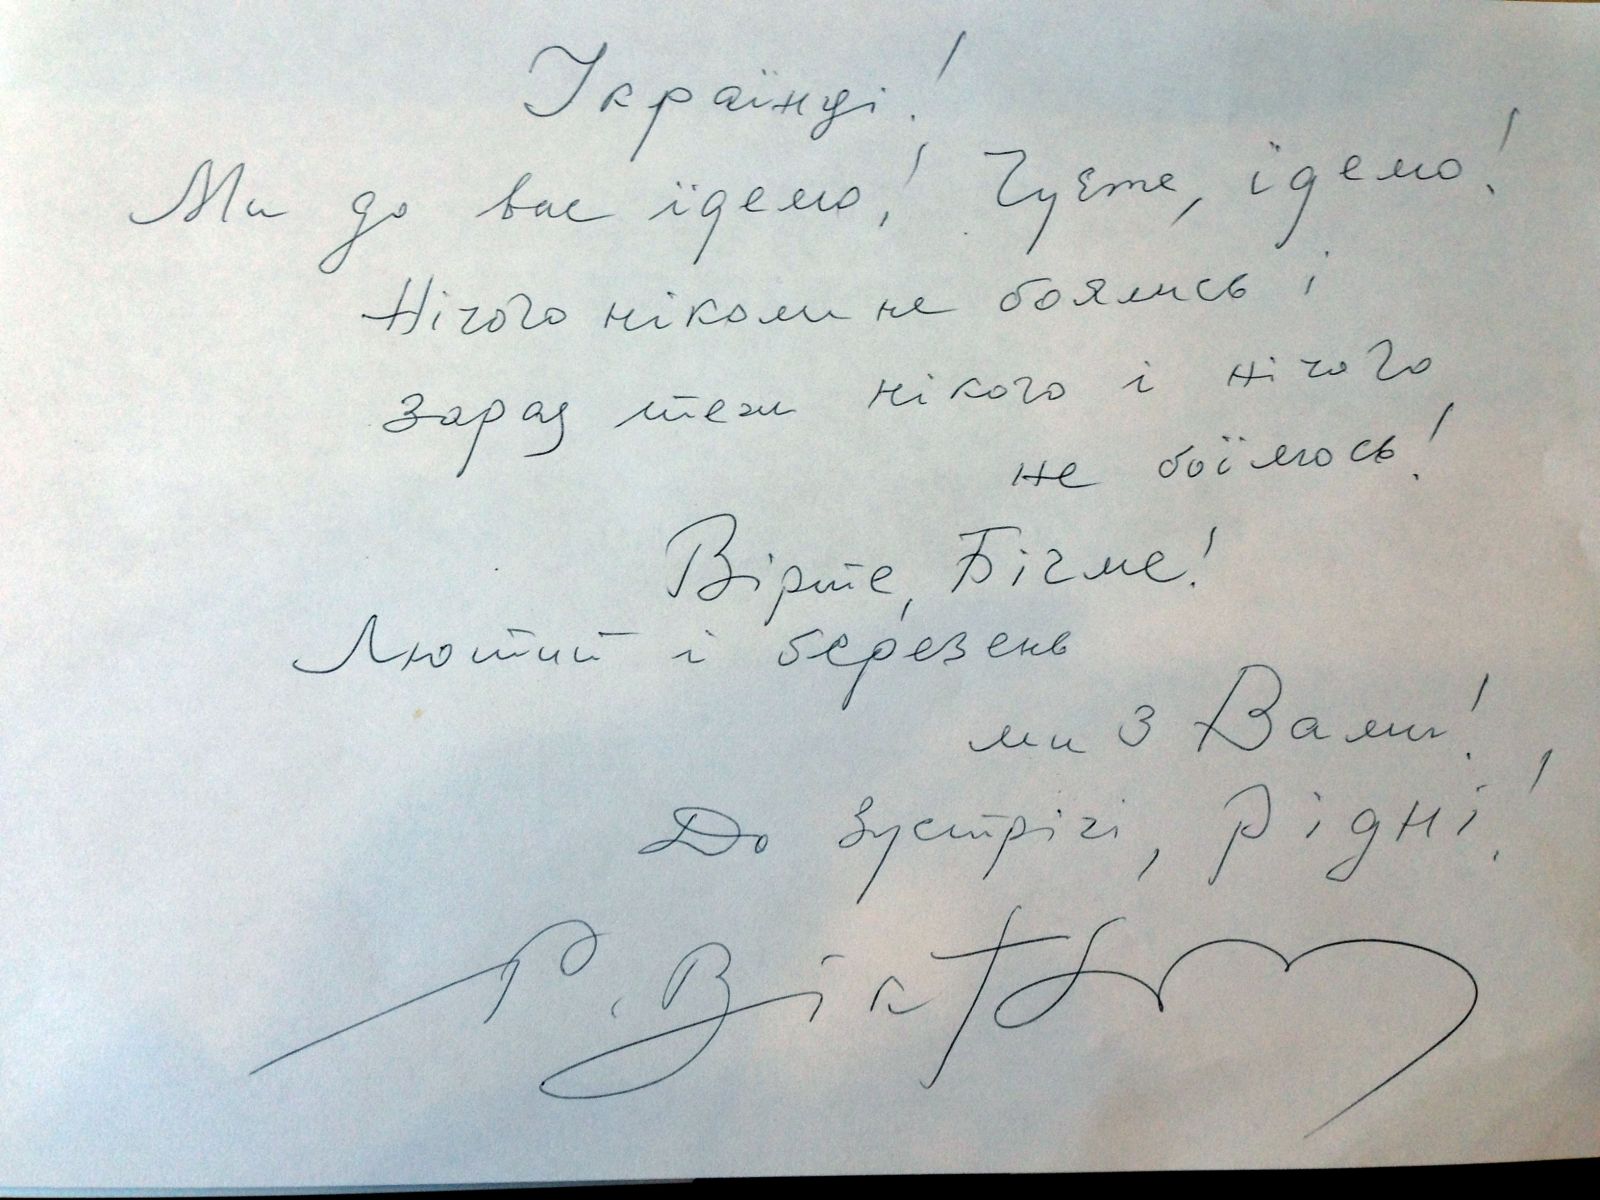 Українці!
Ми до вас їдемо! Чуєте, їдемо!
Нічого ніколи не боялись і
зараз теж нікого і нічого
не боїмось!
Вірте, Бігме!
Лютий і березень
ми з Вами!
До зустрічі, рідні!
Р. Віктюк